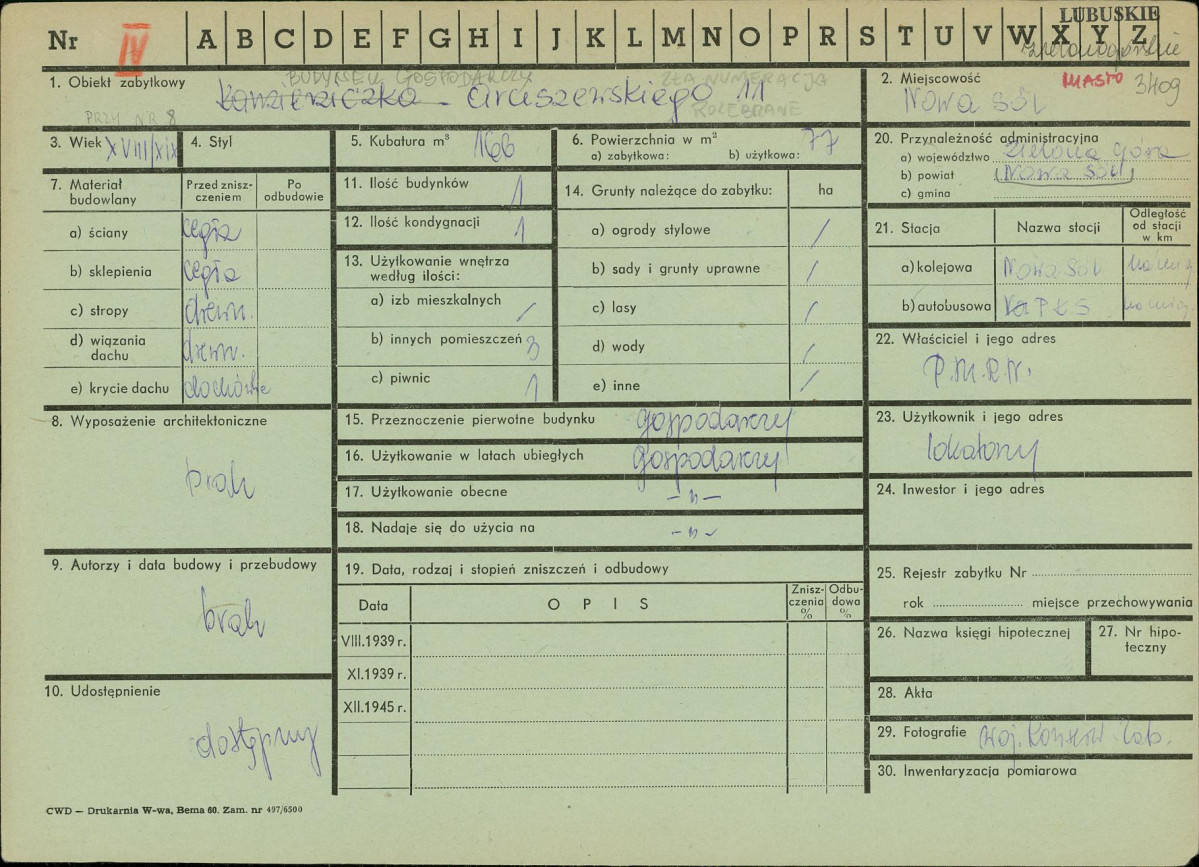 LUBUSKIE
Nr IV A B C D E F G H I J K L M N O P R S T U V W X Y Z
zielonogórskie
1. Obiekt zabytkowy
BUDYNEK GOSPODARCZY
ZŁA NUMERACJA
Arciszewskiego 11
ROZEBRANE
PRZY NR 8
2. Miejscowość
MIASTO 3409
Nowa Sól
3. Wiek XVIII/XIX
4. Styl
5. Kubatura m³ 166
6. Powierzchnia w m²
a) zabytkowa: b) użytkowa: 77
20. Przynależność administracyjna
a) województwo Zielona Góra
b) powiat (Nowa Sól)
c) gmina
7. Materiał budowlany
Przed zniszczeniem
Po odbudowie
a) ściany cegła
b) sklepienia cegła
c) stropy drewn.
d) wiązania dachu drewn.
e) krycie dachu dachówka
11. Ilość budynków 1
12. Ilość kondygnacji 1
13. Użytkowanie wnętrza według ilości:
a) izb mieszkalnych /
b) innych pomieszczeń 3
c) piwnic 1
14. Grunty należące do zabytku: ha
a) ogrody stylowe /
b) sady i grunty uprawne /
c) lasy /
d) wody /
e) inne /
21. Stacja
Nazwa stocji
Odległość od stacji w km
a) kolejowa Nowa Sól
b) autobusowa PKS
22. Właściciel i jego adres
P.M.R.N.
8. Wyposażenie architektoniczne
brak
15. Przeznoczenie pierwotne budynku gospodarczy
16. Użytkowanie w latach ubiegłych gospodarczy
17. Użytkowanie obecne -"-
18. Nadaje się do użycia na -"-
23. Użytkownik i jego adres
lokatorzy
24. Inwestor i jego adres
9. Autorzy i data budowy i przebudowy
brak
19. Data, rodzaj i stopień zniszczeń i odbudowy
Data
O P I S
Zniszczenia %
Odbudowa %
VIII.1939 r.
XI.1939 r.
XII.1945 r.
25. Rejestr zabytku Nr
rok miejsce przechowywania
26. Nazwa księgi hipotecznej
27. Nr hipoteczny
10. Udostępnienie
dostępny
28. Akta
29. Fotografie woj. Konserw. Zab.
30. Inwentaryzacja pomiarowa
CWD — Drukarnia W-wa, Bema 60. Zam. nr 497/6500